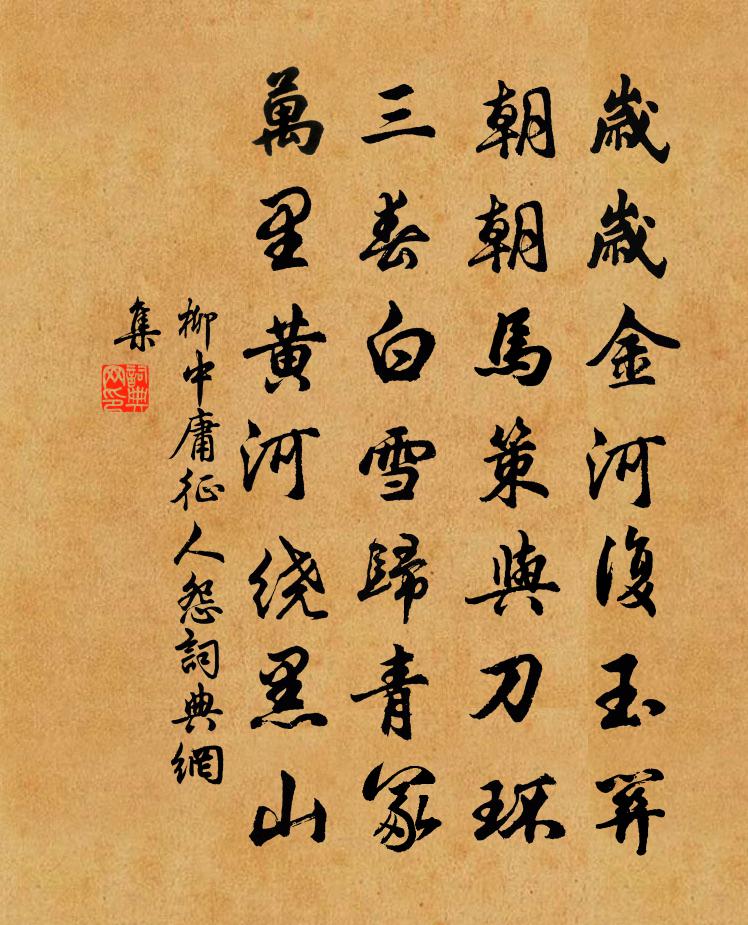 歲歲金河復玉關
朝朝馬策與刀環
三春白雪歸青冢
萬里黃河绕黑山
柳中庸征人怨詞典網
集
詞典
网印